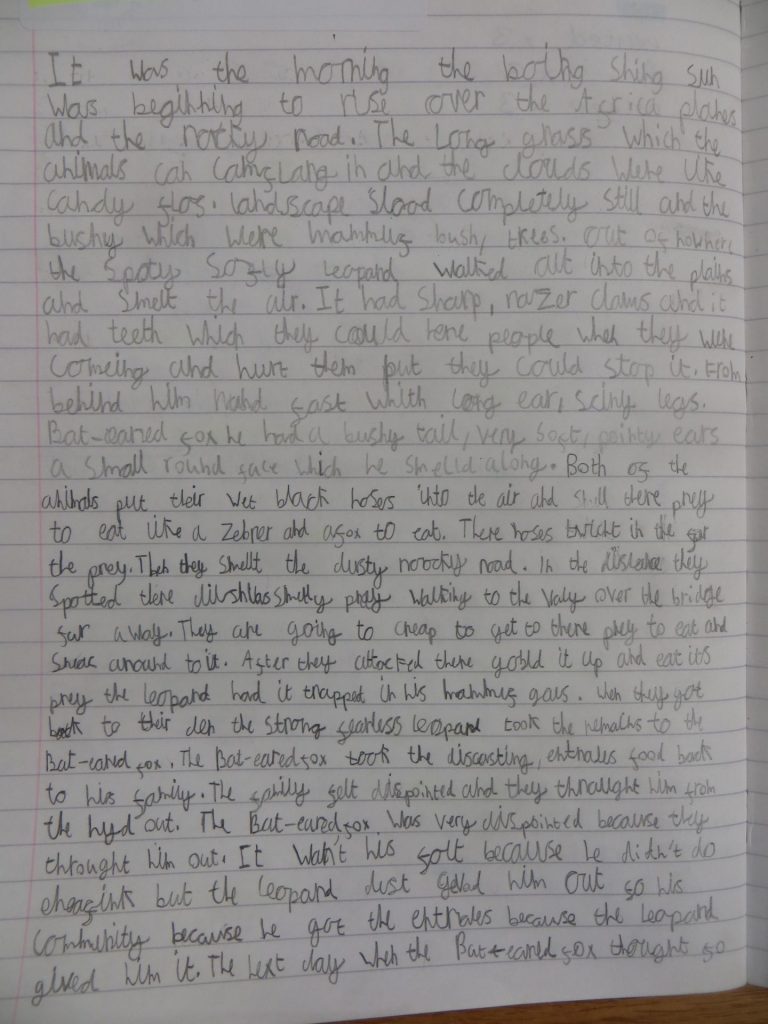 It was the morning the boiling shing sun
was beginning to rise over the Africa planes
and the rocky road. The Long grass which the
animals can camflang in and the clouds were like
candy flos. landscape stood completely still and the
bushy which were mammus bush, trees. out of nowhere
the spoty Sofly leopard walked out into the plains
and smelt the air. It had sharp, razer claws and it
had teeth which they could rene people when they were
comeing and hurt them but they could stop it. From
behind him rand fast whith long ear, sciny legs.
Bat-eared fox he had a bushy tail, very soft, pointy ears
a small round face which he smelld along. Both of the
animals put their wet black noses into the air and smell there prey
to eat like a Zebrer and a fox to eat. There noses twicht in the far
the prey. Then they smellt the dusty roocky road. In the distence they
spotted there smelly prey walking to the valy over the bridge
far away. They are going to creap to get to there prey to eat and
sneac around to it. After they attocked there gobld it up and eat its
prey the leopard had it trapped in his mammus gaus. when they got
back to their den the strong fearless leopard took the remains to the
Bat-eared fox. The Bat-eared fox took the discasting, entrales food back
to his family. The family felt dispointed and they throught him from
the hyd out. The Bat-eared fox was very dispointed because they
throught him out. It wan't his folt because he didn't do
eneafink but the leopard dust him out so his
commeinity because he got the entrales because the leopard
gived him it. The next day when the Bat-eared fox thought so